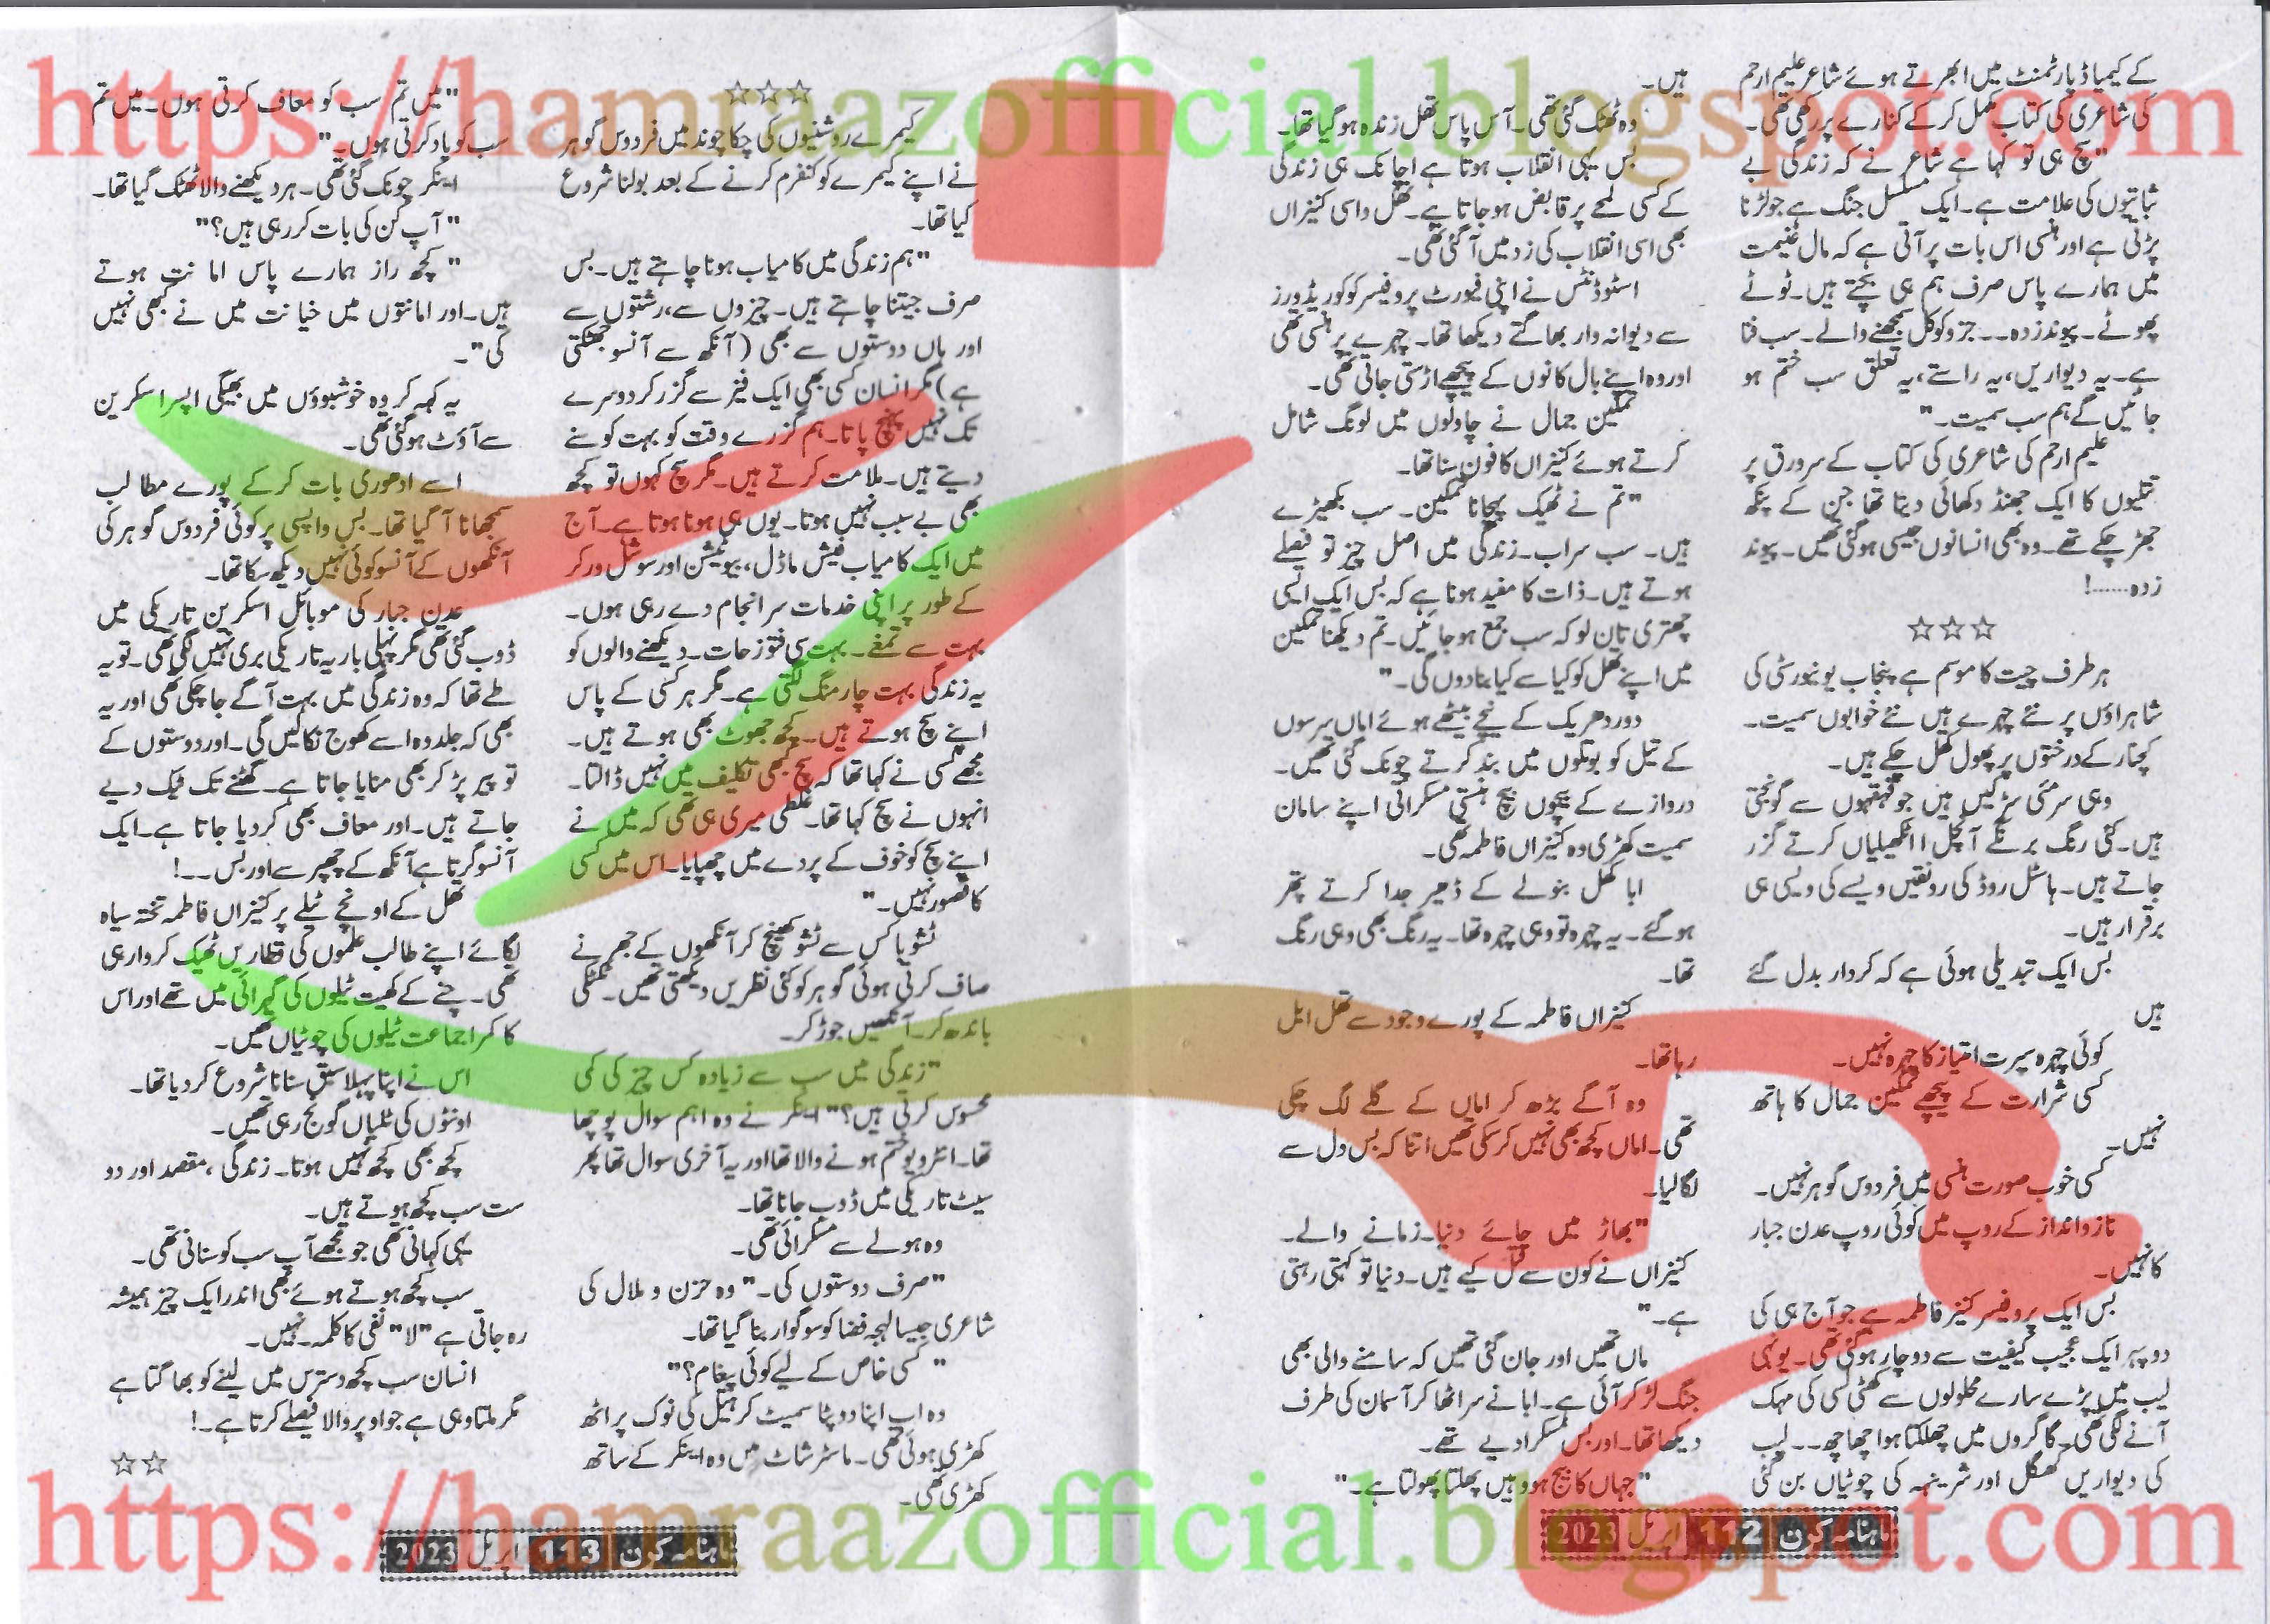 https://hamraazofficial.blogspot.com
کے کیمیا ڈپارٹمنٹ میں ابھرتے ہوئے شاعر علیم ارحم
کی شاعری کی کتاب مکمل کر کے کنارے پر رکھی تھی۔
"سچ ہی تو کہا ہے شاعر نے کہ زندگی بے
ثباتیوں کی علامت ہے۔ ایک مسلسل جنگ ہے جو لڑنا
پڑتی ہے اور ہنسی اس بات پر آتی ہے کہ مال غنیمت
میں ہمارے پاس صرف ہم ہی بچتے ہیں۔ ٹوٹے
پھوٹے۔ پیوند زدہ۔۔۔ جزو کو کل سمجھنے والے۔ سب فنا
ہے۔ یہ دیواریں، یہ راستے، یہ تعلق سب ختم ہو
جائیں گے ہم سب سمیت۔"
علیم ارحم کی شاعری کی کتاب کے سرورق پر
تتلیوں کا ایک جھنڈ دکھائی دیتا تھا جن کے پنکھ
جھڑ چکے تھے۔ وہ بھی انسانوں جیسی ہو گئی تھیں۔ پیوند
زدہ......!
☆☆☆
ہر طرف چیت کا موسم ہے پنجاب یونیورسٹی کی
شاہراؤں پر نئے چہرے ہیں نئے خوابوں سمیت۔
کچنار کے درختوں پر پھول کھل چکے ہیں۔
وہی سرمئی سڑکیں ہیں جو قہقہوں سے گونجتی
ہیں۔ کئی رنگ برنگے آنچل اٹھکیلیاں کرتے گزر
جاتے ہیں۔ ہاسٹل روڈ کی رونقیں ویسے کی ویسی ہی
برقرار ہیں۔
بس ایک تبدیلی ہوئی ہے کہ کردار بدل گئے
ہیں
کوئی چہرہ سیرت امتیاز کا چہرہ نہیں۔
کسی شرارت کے پیچھے تمکین جمال کا ہاتھ
نہیں۔
کسی خوب صورت ہنسی میں فردوس گوہر نہیں۔
ناز و انداز کے روپ میں کوئی روپ عدن جبار
کا نہیں۔
بس ایک پروفیسر کنیز فاطمہ ہے جو آج ہی کی
دوپہر ایک عجیب کیفیت سے دوچار ہو گئی تھی۔ یونہی
لیب میں پڑے سارے محلولوں سے کھٹی لسی کی مہک
آنے لگی تھی۔ گاگروں میں چھلکتا ہوا چھاچھ۔۔۔ لیب
کی دیواریں کھگل اور شرینہہ کی چوٹیاں بن گئی
ہیں۔
وہ ٹھٹک گئی تھی۔ آس پاس تھل زندہ ہو گیا تھا۔
بس یہی انقلاب ہوتا ہے اچانک ہی زندگی
کے کسی لمحے پر قابض ہو جاتا ہے۔ تھل واسی کنیزاں
بھی اسی انقلاب کی زد میں آ گئی تھی۔
اسٹوڈنٹس نے اپنی فیورٹ پروفیسر کو کوریڈورز
سے دیوانہ وار بھاگتے دیکھا تھا۔ چہرے پر ہنسی تھی
اور وہ اپنے بال کانوں کے پیچھے اڑستی جاتی تھی۔
تمکین جمال نے چاولوں میں لونگ شامل
کرتے ہوئے کنیزاں کا فون سنا تھا۔
"تم نے ٹھیک پہچانا تمکین۔ سب بکھیڑے
ہیں۔ سب سراب۔ زندگی میں اصل چیز تو فیصلے
ہوتے ہیں۔ ذات کا مفید ہونا ہے کہ بس ایک ایسی
چھتری تان لو کہ سب جمع ہو جائیں۔ تم دیکھنا تمکین
میں اپنے تھل کو کیا سے کیا بنا دوں گی۔"
دور دھریک کے نیچے بیٹھے ہوئے اماں سرسوں
کے تیل کو بوتلوں میں بند کرتے چونک گئی تھیں۔
دروازے کے بیچوں بیچ ہنستی مسکراتی اپنے سامان
سمیت کھڑی وہ کنیزاں فاطمہ تھی۔
ابا کھل بنولے کے ڈھیر جدا کرتے پتھر
ہو گئے۔ یہ چہرہ تو وہی چہرہ تھا۔ یہ رنگ بھی وہی رنگ
تھا۔
کنیزاں فاطمہ کے پورے وجود سے تھل ابل
رہا تھا۔
وہ آگے بڑھ کر اماں کے گلے لگ چکی
تھی۔ اماں کچھ بھی نہیں کر سکی تھیں اتنا کہ بس دل سے
لگا لیا۔
"بھاڑ میں جائے دنیا۔ زمانے والے۔
کنیزاں نے کون سے قتل کیے ہیں۔ دنیا تو کہتی رہتی
ہے۔"
ماں تھیں اور جان گئی تھیں کہ سامنے والی بھی
جنگ لڑ کر آئی ہے۔ ابا نے سر اٹھا کر آسمان کی طرف
دیکھا تھا۔ اور بس مسکرا دیے تھے۔
"جہاں کا بیج ہو وہیں پھلتا پھولتا ہے۔"
ماہنامہ کرن 112 اپریل 2023
☆☆☆
کیمرے روشنیوں کی چکا چوند میں فردوس گوہر
نے اپنے کیمرے کو کنفرم کرنے کے بعد بولنا شروع
کیا تھا۔
"ہم زندگی میں کامیاب ہونا چاہتے ہیں۔ بس
صرف جیتنا چاہتے ہیں۔ چیزوں سے، رشتوں سے
اور ہاں دوستوں سے بھی (آنکھ سے آنسو جھٹکتی
ہے) مگر انسان کسی بھی ایک فیز سے گزر کر دوسرے
تک نہیں پہنچ پاتا۔ ہم گزرے وقت کو بہت کوسنے
دیتے ہیں۔ ملامت کرتے ہیں۔ مگر سچ کہوں تو کچھ
بھی بے سبب نہیں ہوتا۔ یوں ہی ہونا ہوتا ہے۔ آج
میں ایک کامیاب فیشن ماڈل، بیوٹیشن اور سوشل ورکر
کے طور پر اپنی خدمات سر انجام دے رہی ہوں۔
بہت سے تمغے۔ بہت سی فتوزحات۔ دیکھنے والوں کو
یہ زندگی بہت چارمنگ لگتی ہے۔ مگر ہر کسی کے پاس
اپنے سچ ہوتے ہیں۔ کچھ جھوٹ بھی ہوتے ہیں۔
مجھے کسی نے کہا تھا کہ سچ کبھی تکلیف میں نہیں ڈالتا۔
انہوں نے سچ کہا تھا۔ غلطی میری ہی تھی کہ میں نے
اپنے سچ کو خوف کے پردے میں چھپایا۔ اس میں کسی
کا قصور نہیں۔"
ٹشو باکس سے ٹشو کھینچ کر آنکھوں کے جھرنے
صاف کرتی ہوئی گوہر کو کئی نظریں دیکھتی تھیں۔ ٹکٹکی
باندھ کر۔ آنکھیں جوڑ کر۔
"زندگی میں سب سے زیادہ کس چیز کی کمی
محسوس کرتی ہیں؟" اینکر نے وہ اہم سوال پوچھا
تھا۔ انٹرویو ختم ہونے والا تھا اور یہ آخری سوال تھا پھر
سیٹ تاریکی میں ڈوب جانا تھا۔
وہ ہولے سے مسکرائی تھی۔
"صرف دوستوں کی۔" وہ حزن و ملال کی
شاعری جیسا لہجہ فضا کو سوگوار بنا گیا تھا۔
"کسی خاص کے لیے کوئی پیغام؟"
وہ اب اپنا دوپٹا سمیٹ کر ہیل کی نوک پر اٹھ
کھڑی ہوئی تھی۔ ماسٹر شاٹ میں وہ اینکر کے ساتھ
کھڑی تھی۔
"میں تم سب کو معاف کرتی ہوں۔ میں تم
سب کو یاد کرتی ہوں۔"
اینکر چونک گئی تھی۔ ہر دیکھنے والا ٹھٹک گیا تھا۔
"آپ کن کی بات کر رہی ہیں؟"
"کچھ راز ہمارے پاس امانت ہوتے
ہیں۔ اور امانتوں میں خیانت میں نے کبھی نہیں
کی"۔
یہ کہہ کر وہ خوشبوؤں میں بھیگی اپسرا سکرین
سے آؤٹ ہو گئی تھی۔
اسے ادھوری بات کر کے پورے مطالب
سمجھانا آ گیا تھا۔ بس واپسی پر کوئی فردوس گوہر کی
آنکھوں کے آنسو کوئی نہیں دیکھ سکا تھا۔
عدن جبار کی موبائل اسکرین تاریکی میں
ڈوب گئی تھی مگر پہلی بار یہ تاریکی بری نہیں لگی تھی۔ تو یہ
طے تھا کہ وہ زندگی میں بہت آگے جا چکی تھی اور یہ
بھی کہ جلد وہ اسے کھوج نکالیں گی۔ اور دوستوں کے
تو پیر پڑ کر بھی منایا جاتا ہے۔ گھٹنے تک ٹیک دیے
جاتے ہیں۔ اور معاف بھی کر دیا جاتا ہے۔ ایک
آنسو گرتا ہے آنکھ کے چھپر سے اور بس۔۔۔!
تھل کے اونچے ٹیلے پر کنیزاں فاطمہ تختہ سیاہ
لگائے اپنے طالب علموں کی قطاریں ٹھیک کروا رہی
تھی۔ چنے کے کھیت ٹیلوں کی گہرائی میں تھے اور اس
کا کمرا جماعت ٹیلوں کی چوٹیاں تھیں۔
اس نے اپنا پہلا سبق سنانا شروع کر دیا تھا۔
اونٹوں کی ٹلیاں گونج رہی تھیں۔
کچھ بھی کچھ نہیں ہوتا۔ زندگی، مقصد اور دو
ست سب کچھ ہوتے ہیں۔
یہی کہانی تھی جو مجھے آپ سب کو سنانی تھی۔
سب کچھ ہوتے ہوئے بھی اندر ایک چیز ہمیشہ
رہ جاتی ہے "لا" نفی کا کلمہ۔ نہیں۔
انسان سب کچھ دسترس میں لینے کو بھاگتا ہے
مگر ملتا وہی ہے جو اوپر والا فیصلے کرتا ہے۔!
☆☆
ماہنامہ کرن 113 اپریل 2023
https://hamraazofficial.blogspot.com